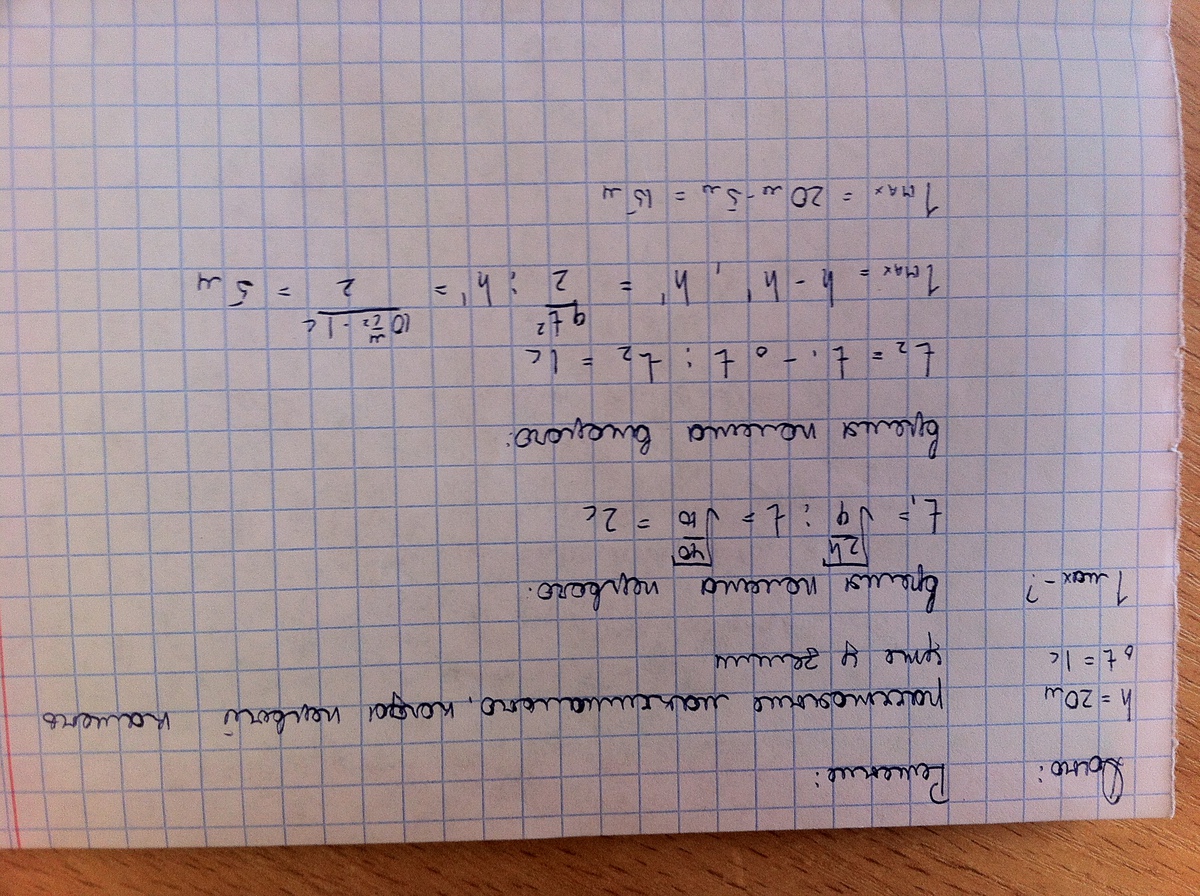 Дано: Решение:
h = 20м расстояние максимально, когда первый камень
Δt = 1с уже у земли
l max - ? время полета первого:
t₁ = √(2h/g) ; t = √(40/10) = 2с
время полета второго:
t₂ = t₁ - Δt ; t₂ = 1с
l max = h - h' , h' = gt²/2 ; h' = (10 м/с² · 1с)/2 = 5 м
l max = 20 м - 5 м = 15 м